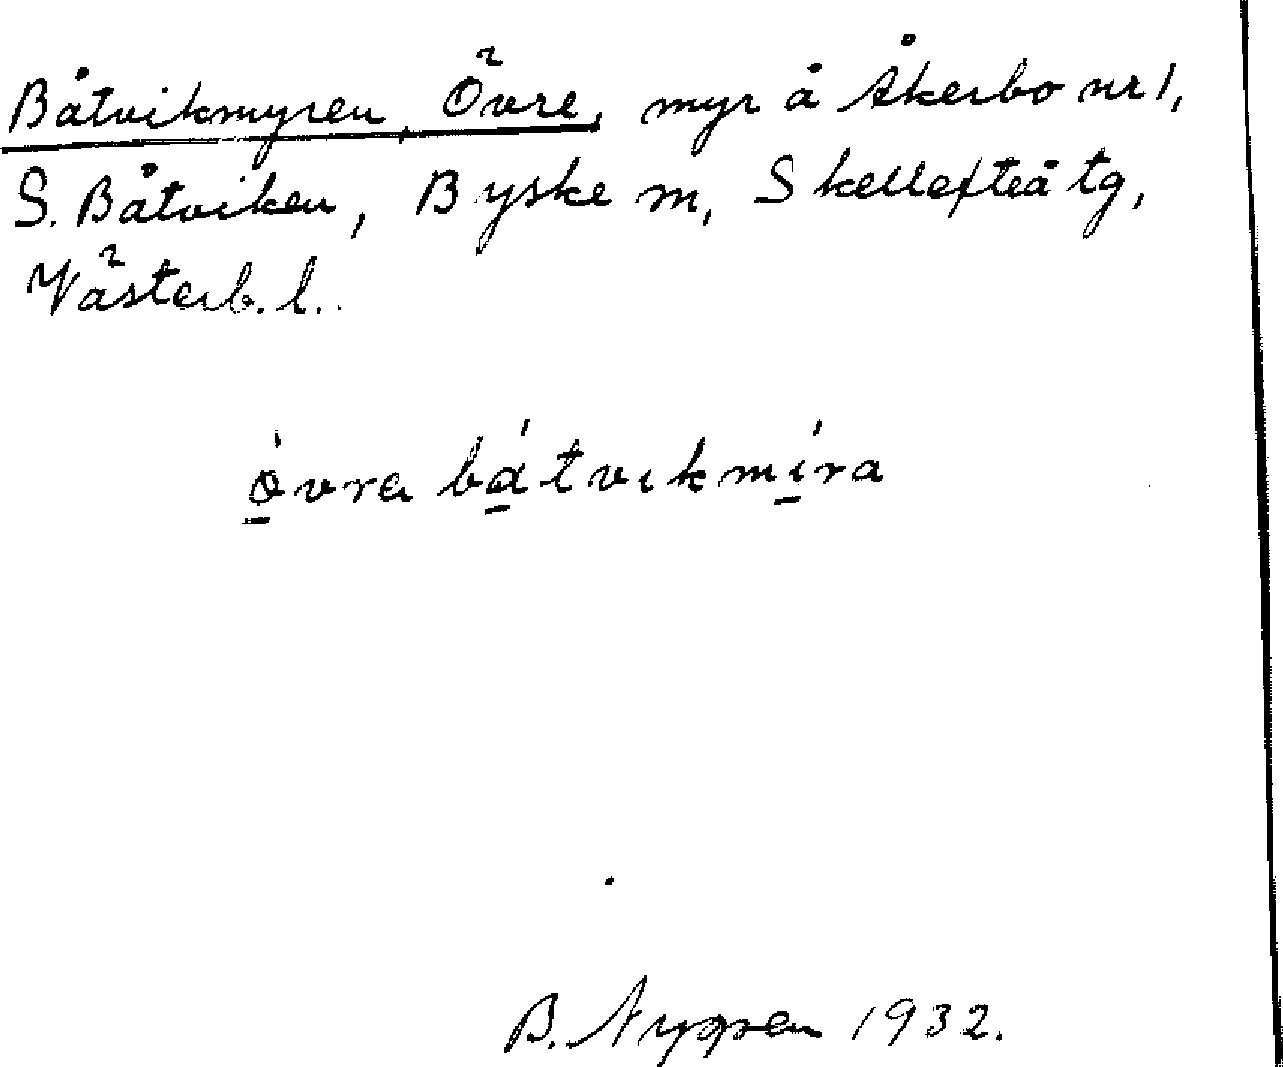 Båtvikmyren, Övre, myr å Åkerbo nr 1,
S. Båtviken, Byske sn, Skellefteå tg,
Västerb. l.
ǿvra bátvikmíra
B. Nygren 1932.